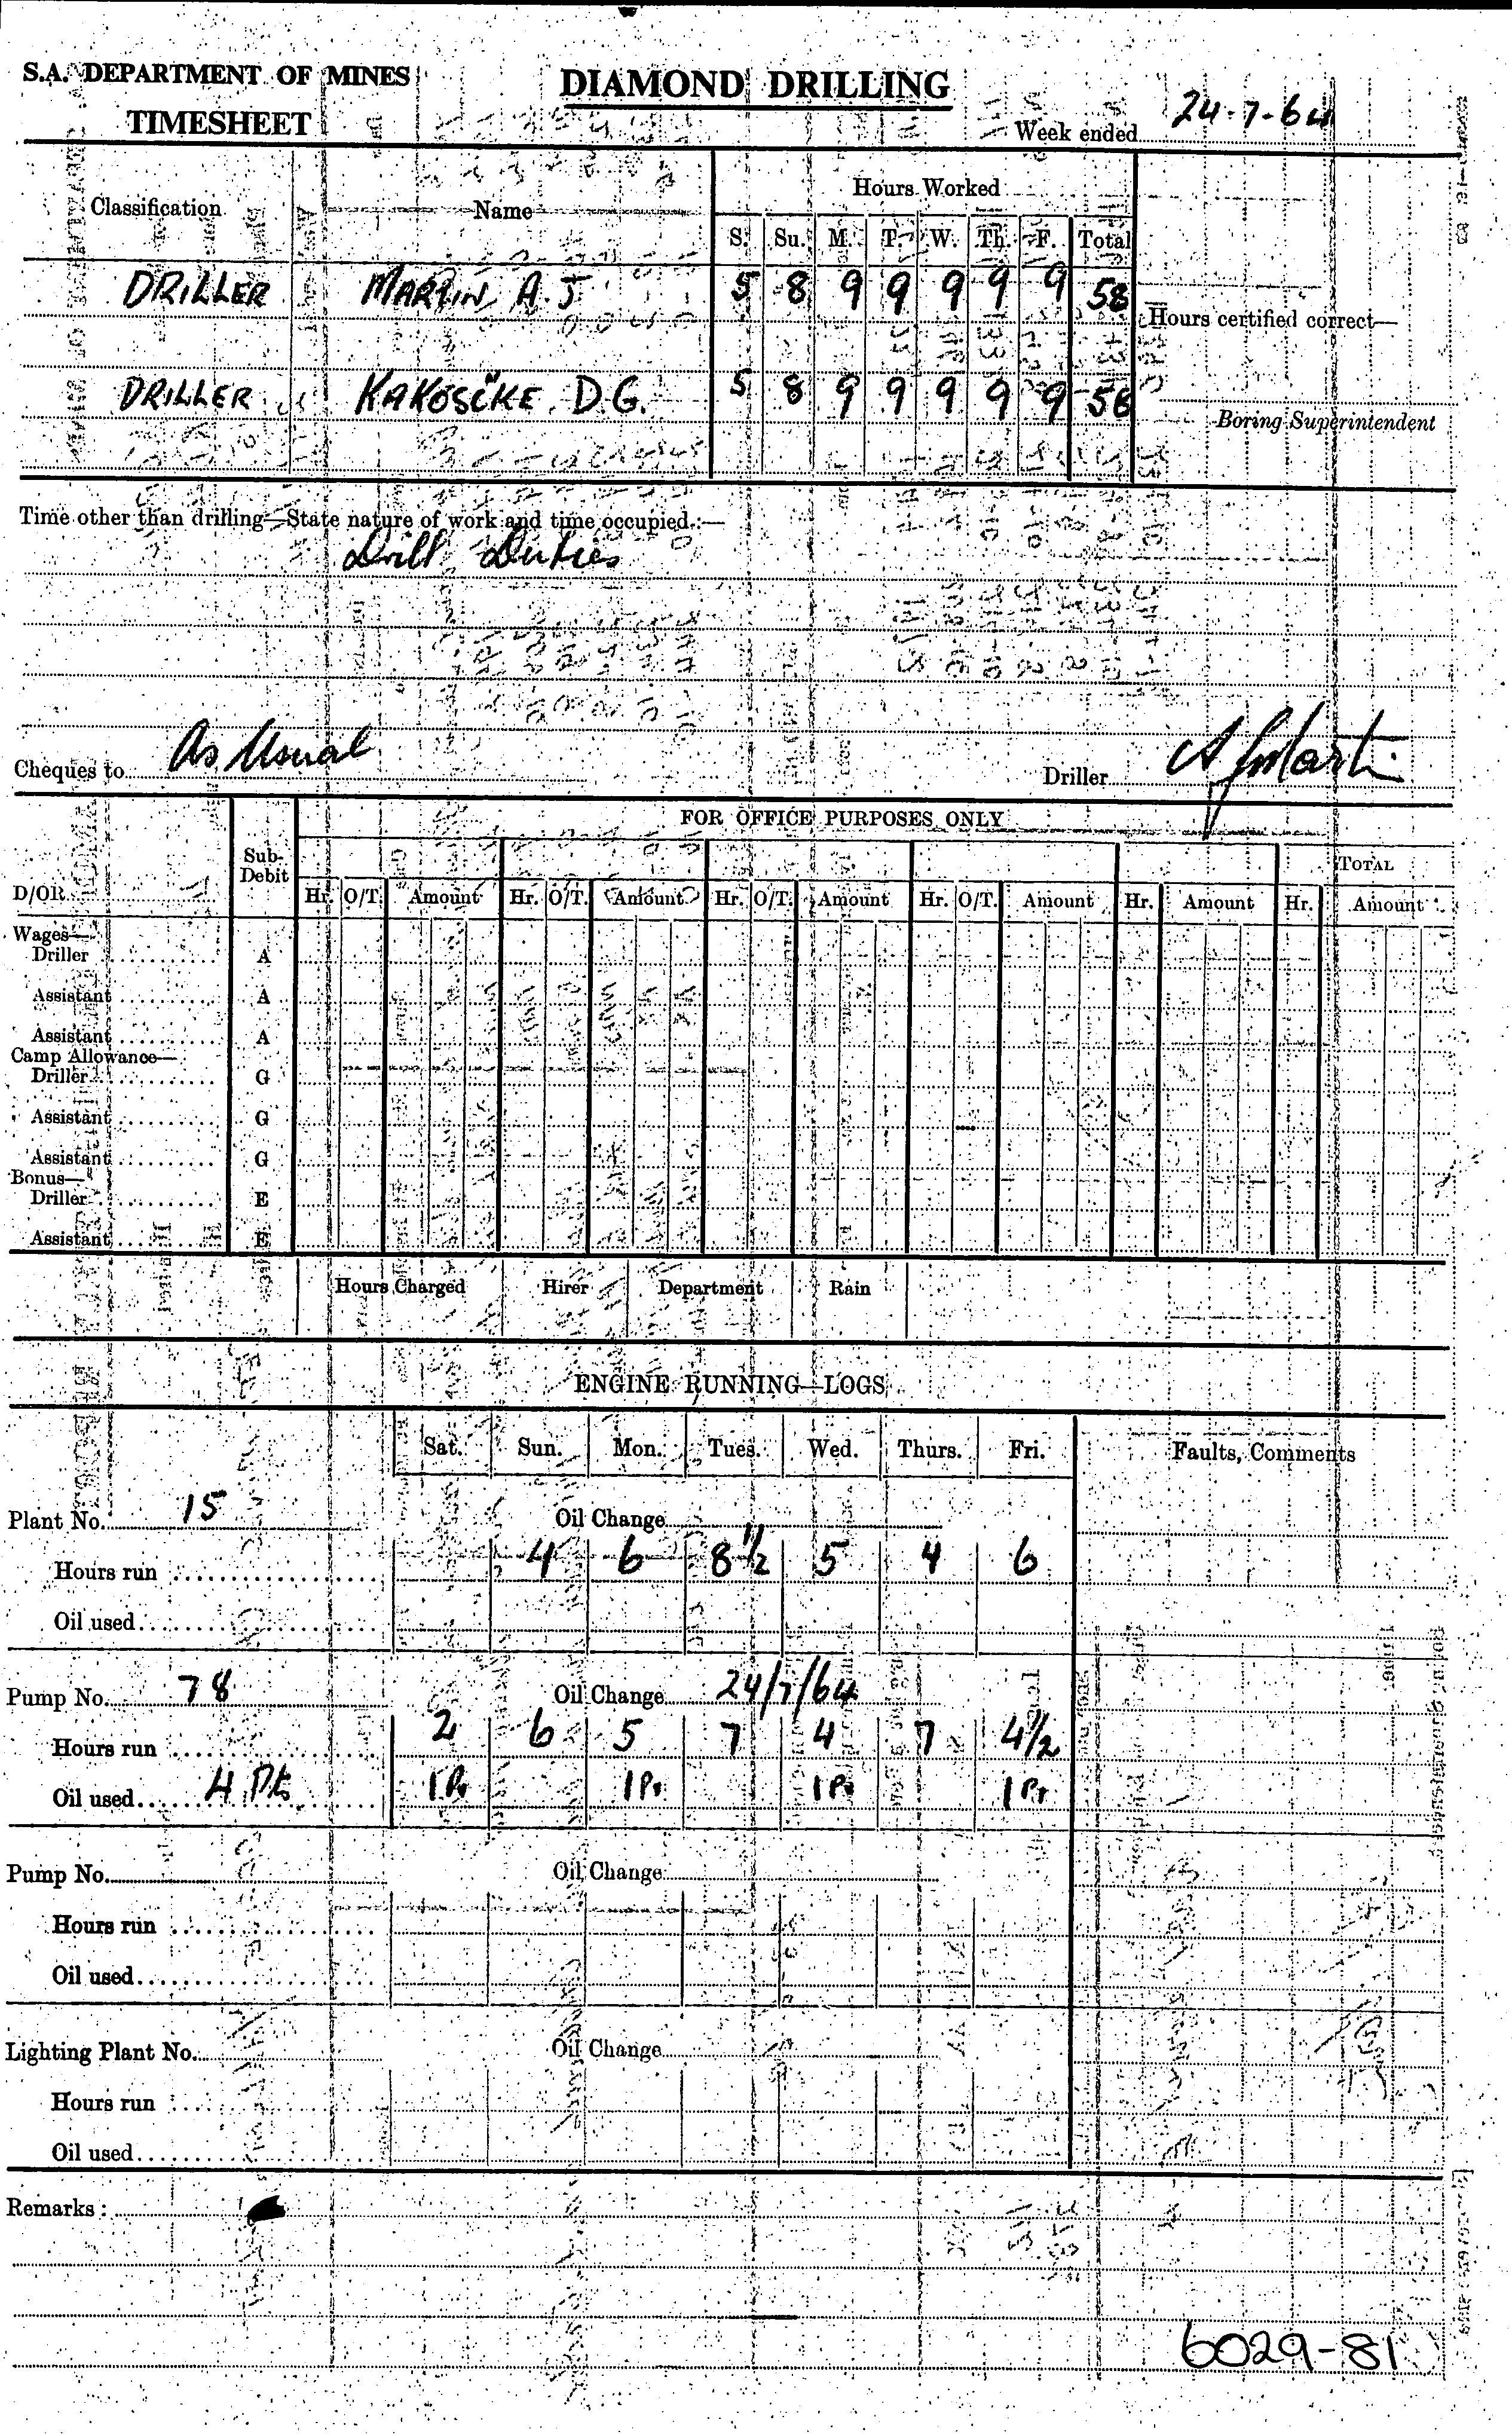 S.A. DEPARTMENT OF MINES
DIAMOND DRILLING
TIMESHEET
Week ended 24-7-64
Classification Name Hours Worked
S. Su. M. T. W. Th. F. Total
DRILLER MARTIN A.J 5 8 9 9 9 9 9 58
Hours certified correct—
DRILLER D.G. 5 8 9 9 9 9 9 58
Boring Superintendent
Time other than drilling—State nature of work and time occupied.:—
Drill Duties
Cheques to As Usual Driller A J Martin
FOR OFFICE PURPOSES ONLY
D/OR Sub-Debit TOTAL
Hr. O/T. Amount Hr. O/T. Amount Hr. O/T. Amount Hr. O/T. Amount Hr. Amount Hr. Amount
Wages—
Driller A
Assistant A
Assistant A
Camp Allowance—
Driller G
Assistant G
Assistant G
Bonus—
Driller E
Assistant E
Hours Charged Hirer Department Rain
ENGINE RUNNING—LOGS
Sat. Sun. Mon. Tues. Wed. Thurs. Fri. Faults, Comments
Plant No. 15 Oil Change
Hours run 4 6 8½ 5 4 6
Oil used
Pump No. 78 Oil Change 24/7/64
Hours run 2 6 5 7 4 7 4½
Oil used 4 Pts 1 Pt 1 Pt 1 Pt 1 Pt
Pump No. Oil Change
Hours run
Oil used
Lighting Plant No. Oil Change
Hours run
Oil used
Remarks :
6029-81